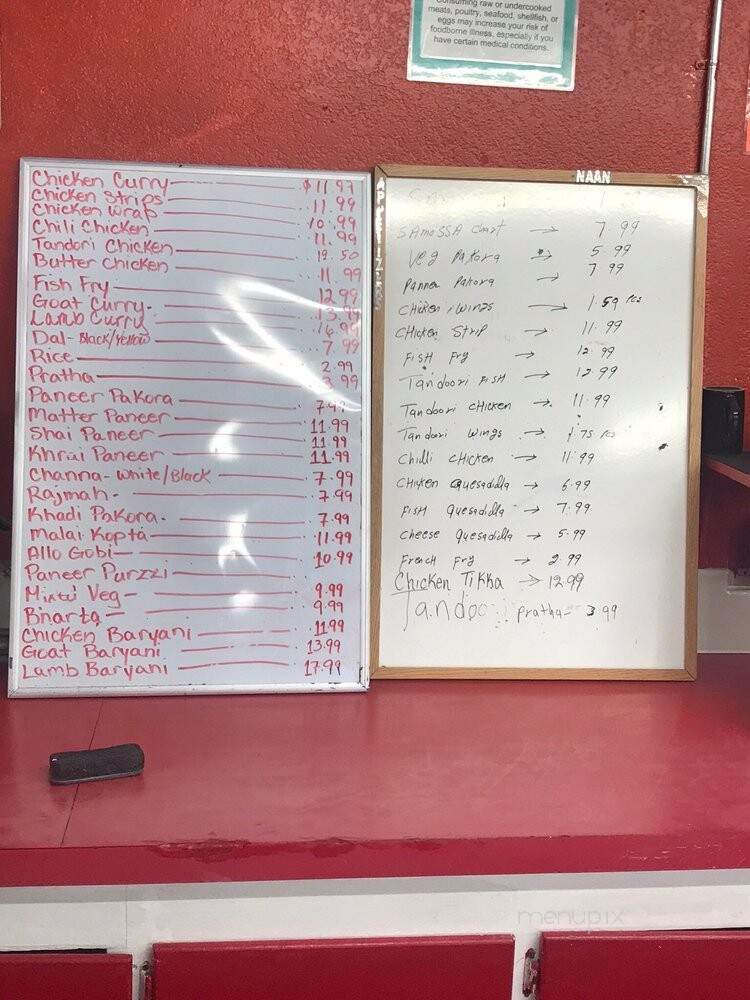 Consuming raw or undercooked
meats, poultry, seafood, shellfish, or
eggs may increase your risk of
foodborne illness, especially if you
have certain medical conditions.
Chicken Curry $11.97
Chicken Strips 11.99
Chicken Wrap 10.99
Chili Chicken 11.99
Tandori Chicken 12.50
Butter Chicken 11.99
Fish Fry 12.99
Goat Curry. 13.99
Lamb Curry 16.99
Dal- Black/Yellow 7.99
Rice 2.99
Pratha 3.99
Paneer Pakora 7.99
Matter Paneer 11.99
Shai Paneer 11.99
Khrai Paneer 11.99
Channa- White/Black 7.99
Rajmah- 7.99
Khadi Pakora. 7.99
Malai Kopta 11.99
Allo Gobi 10.99
Paneer Purzzi
Mixed Veg- 9.99
Bharta 9.99
Chicken Baryani 11.99
Goat Baryani 13.99
Lamb Baryani 17.99
NAAN
SAmoSSA Chart → 7.99
Veg Pakora → 5.99
Panner Pakora → 7.99
CHicken wings → 1.59 Pcs
CHicken Strip → 11.99
FiSH Fry → 12.99
Tandoori FiSH → 12.99
Tandoori CHicken → 11.99
Tandoori Wings → 1.75 Pcs
Chilli CHicken → 11.99
CHicken Quesadilla → 6.99
FiSH Quesadilla → 7.99
Cheese Quesadilla → 5.99
French Fry → 2.99
Chicken Tikka → 12.99
Tandoo Pratha- 3.99
menupix